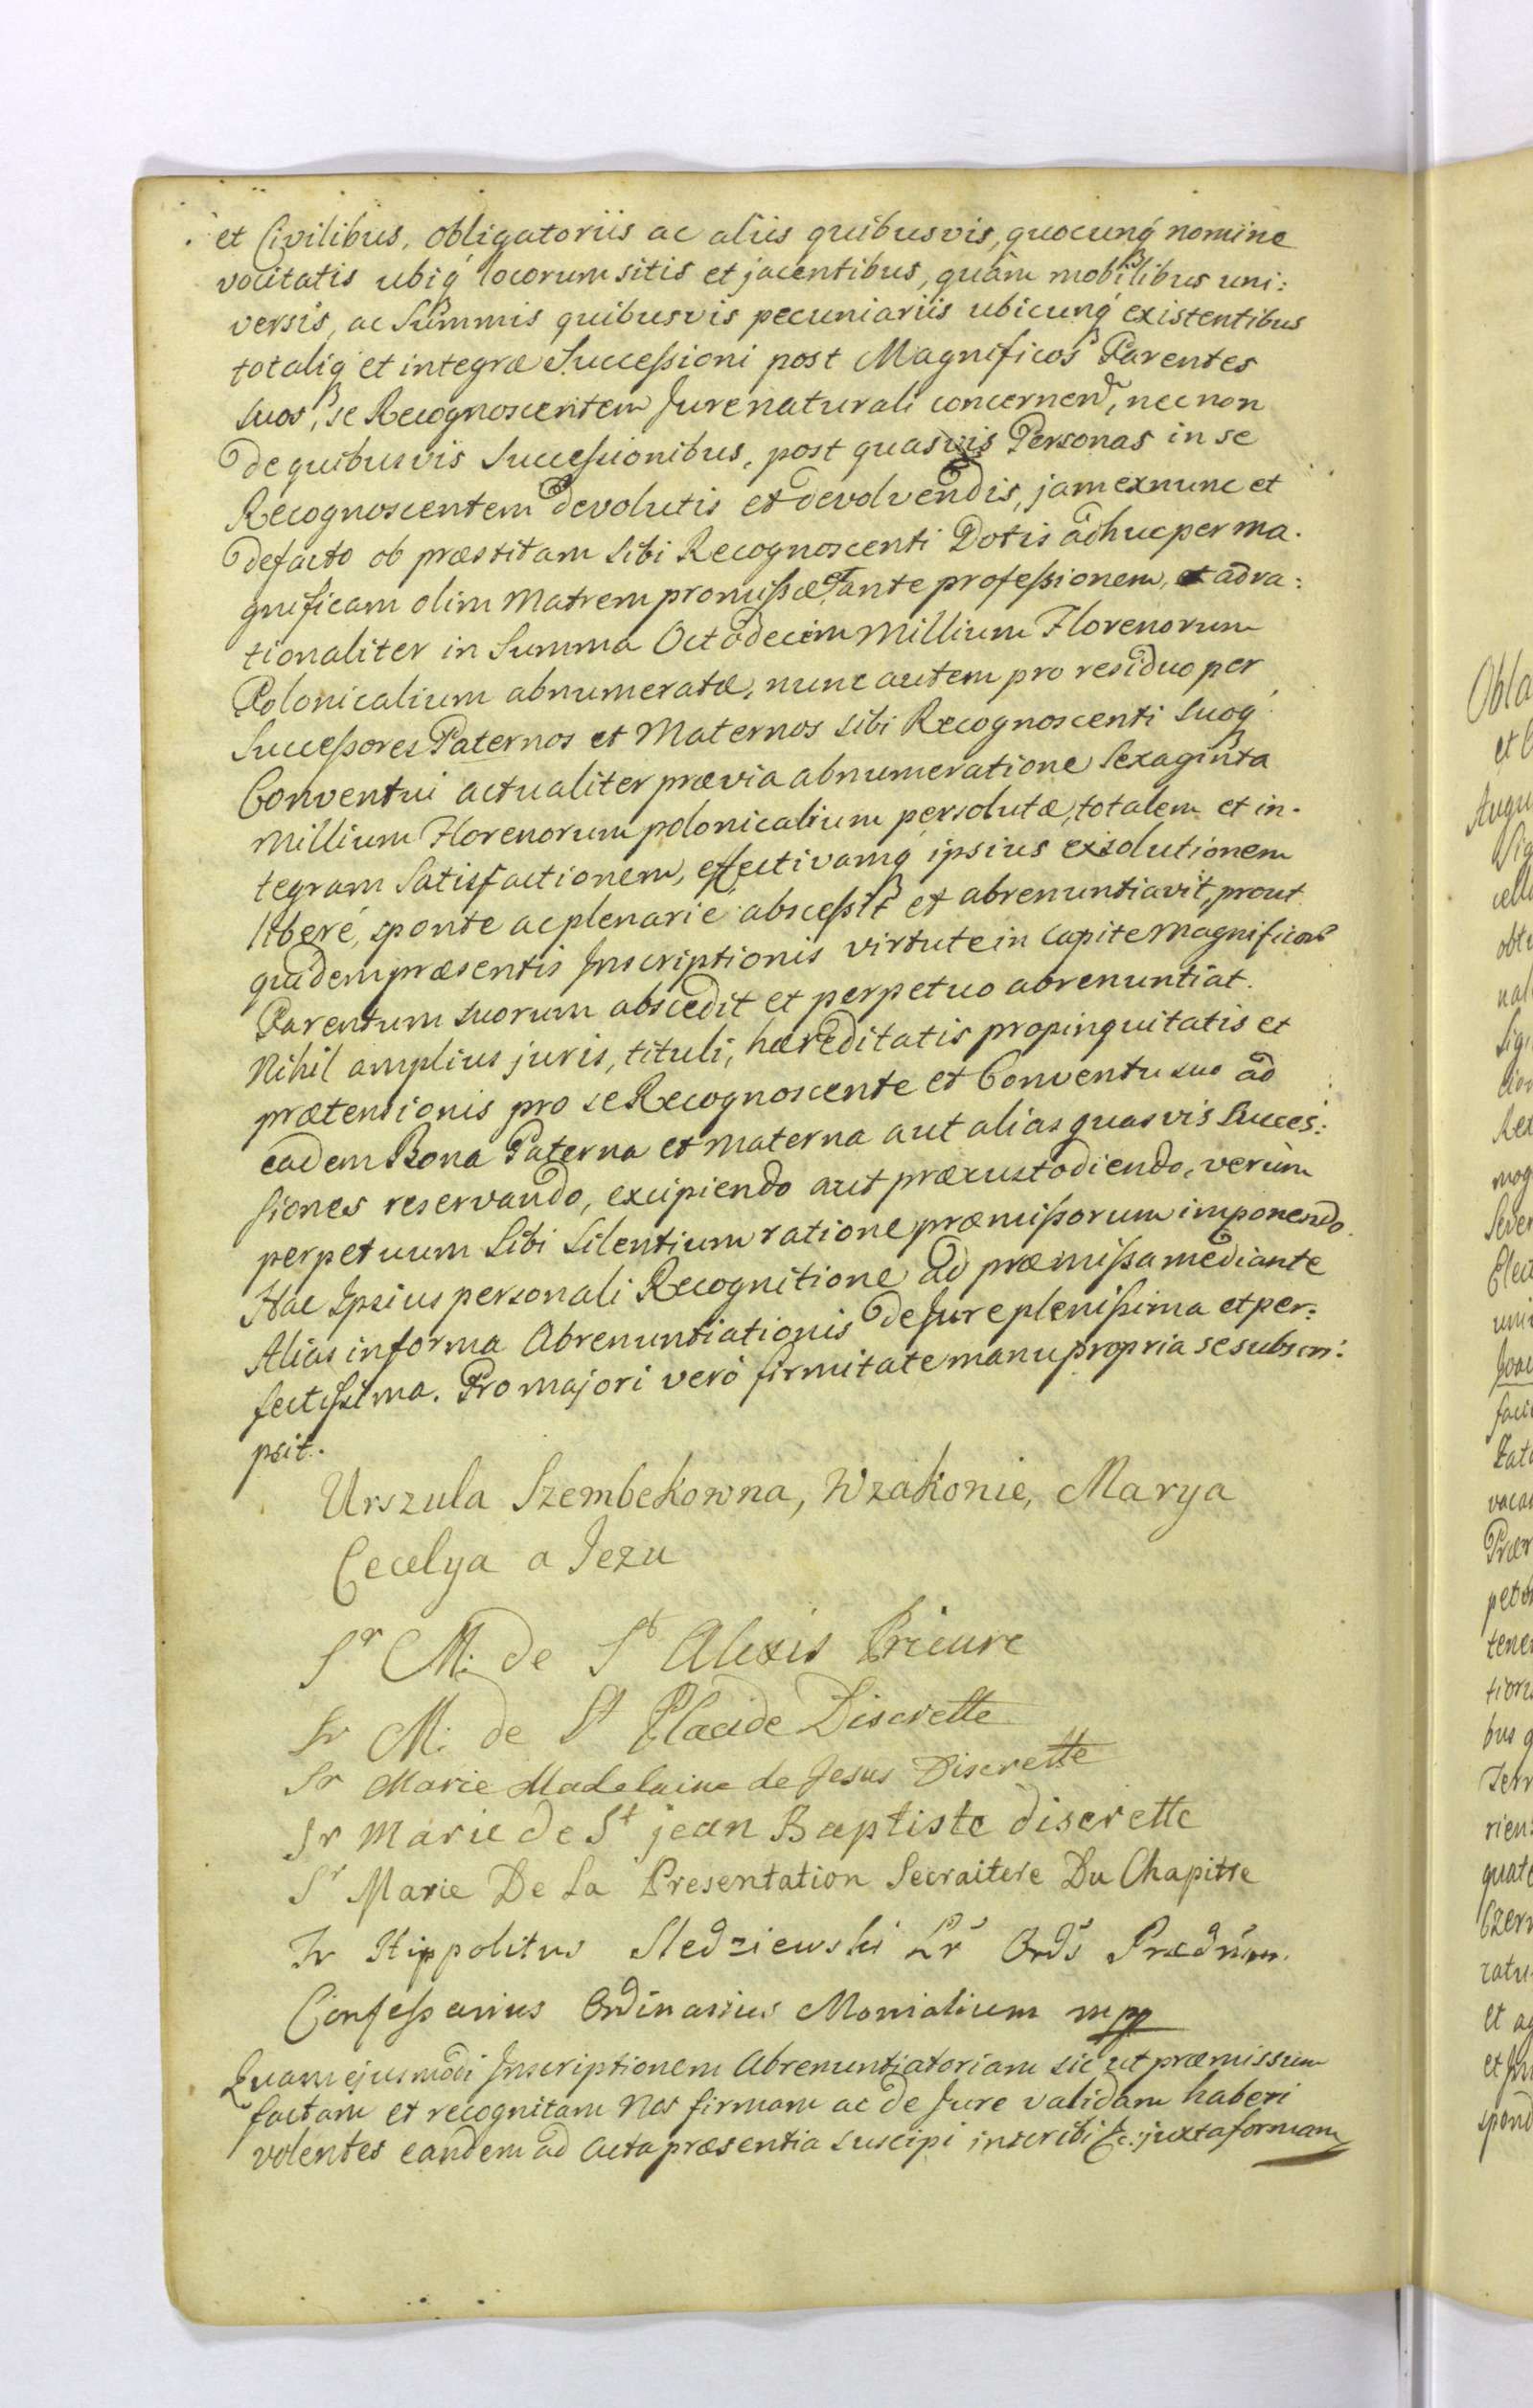 et Civilibus, obligatoriis ac aliis quibusvis, quocunq nomine
vocitatis ubiq locorum sitis et jacentibus, quàm mobilibus uni:
versis, ac Summis quibusvis pecuniariis ubicunq existentibus
totaliq et integræ Successioni post Magnificos Parentes
suos, se Recognoscentem Jure naturali concernen, nec non
de quibusvis Successionibus, post quasvis Personas in se
Recognoscentem devolutis et devolvendis, jam exnunc et
defacto ob præstitam sibi Recognoscenti Dotis adhuc per Ma.
gnificam olim Matrem promissæ et ante professionem, adra:
tionaliter in Summa Octodecim Millium Florenorum
Polonicalium abnumeratæ, nunc autem pro residuo per
Successores Paternos et Maternos sibi Recognoscenti suoq
Conventui actualiter prævia abnumeratione Sexaginta
Millium Florenorum polonicalium persolutæ, totalem et in.
tegram Satisfactionem, effectivamq ipsius exsolutionem
liberé, sponte ac plenarié abscessit et abrenuntiavit, prout
quidem præsentis Inscriptionis virtute in Capite Magnificor
Parentum suorum abscedit et perpetuo abrenuntiat.
Nihil amplius juris, tituli, hæreditatis propinquitatis et
prætensionis pro se Recognoscente et Conventu suo ad
eadem Bona Paterna et Materna aut alias quasvis Succes:
siones reservando, excipiendo aut præcustodiendo, verùm
perpetuum Sibi Silentium ratione præmissorum imponendo.
Hac Ipsius personali Recognitione ad præmissa mediante
Alias in forma Abrenuntiationis de Jure plenissima et per:
fectissima. Pro majori verò firmitate manu propria se subscri:
psit.
Urszula Szembekowna, Wzakonie, Marya
Cecelya a Jezu
Sr M: de St Alexis Prieure
Sr M: de St Placide Discrette
Sr Marie Madelaine de Jesus Discrette
Sr Marie de St jean Baptiste discrette
Sr Marie De La Presentation Secraitere Du Chapitre
Fr Hippolitus Sledziewski Lr Ords Prædrum.
Confessarius Ordinarius Monialium mpp
Quam ejusmodi Inscriptionem Abrenuntiatoriam sic ut præmissum
factam et recognitam Nos firmam ac de Jure validam haberi
volentes eandem ad Acta præsentia suscipi inscribi &c: juxta formam